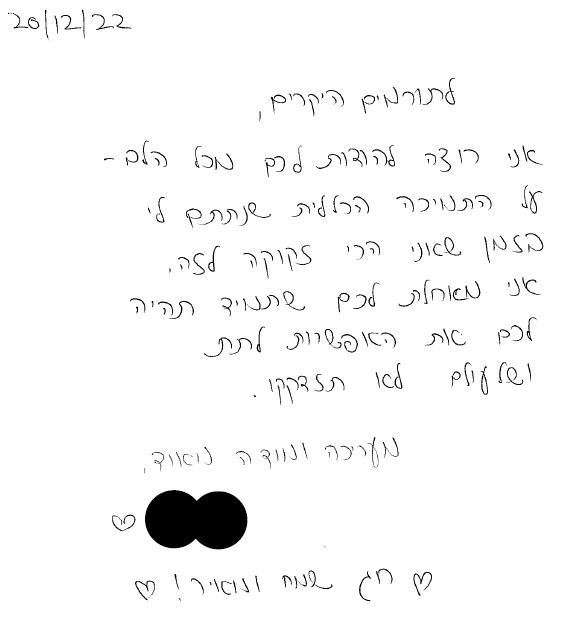 20/12/22
לתורמים היקרים,
אני רוצה להודות לכם מכל הלב -
על התמיכה הכללית שנתתם לי
בזמן שאני הכי זקוקה לזה.
אני מאחלת לכם שתמיד תהיה
לכם את האפשרות לתת
ושלעולם לא תזדקקו.
מעריכה ומודה מאוד,
♡
♡ חג שמח ומאיר! ♡